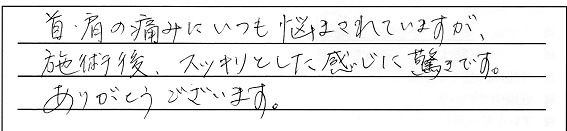 首・肩の痛みにいつも悩まされていますが、
施術後、スッキリとした感じに驚きです。
ありがとうございます。